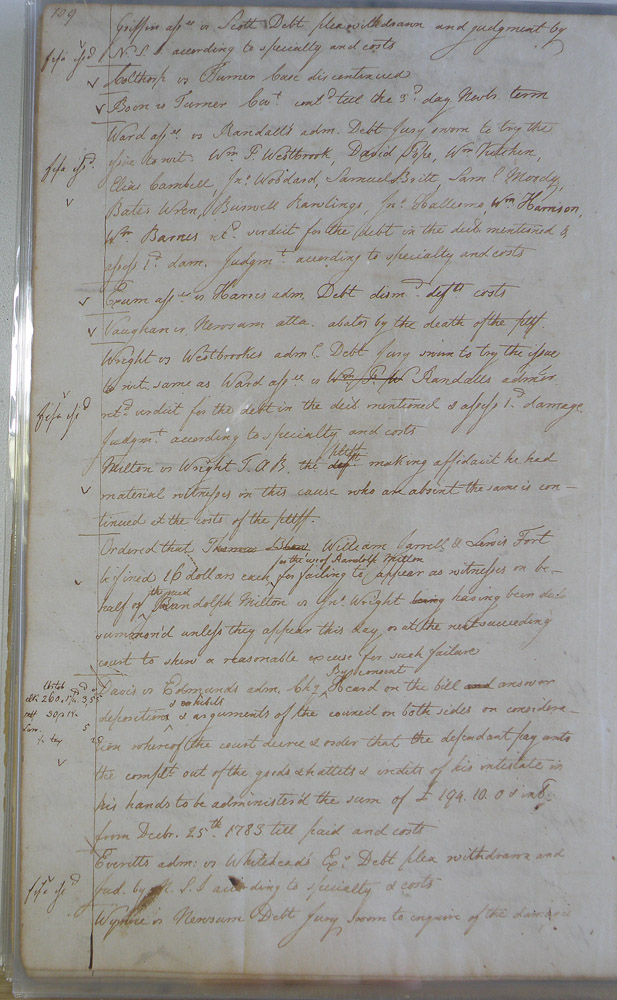 109
Griffin assee vs Scott Debt plea withdrawn and judgment by
N. S. I. according to specialty and costs
Colthorp vs Turner Case discontinued
Boon vs Turner Covt. contd till the 3d day Novbr. term
Ward assee vs Randall's adm. Debt Jury sworn to try the
issue to wit. Wm P. Westbrook, David Pope, Wm Kitchen,
Elias Cambell, Jno. Woodard, Samuel Britt, Saml. Moody,
Bates Wren, Burwell Rawlings, Jno. Wm Harrison,
Wm. Barnes retd. verdict for the debt in the decl. mentioned &
assess 1d. dam. Judgmt. according to specialty and costs
Exum assee vs Harris adm. Debt dismd. defts costs
Vaughan vs. Newsum atta. abates by the death of the pltf.
Wright vs Westbrookes adm. Debt Jury sworn to try the issue
to wit. same as Ward assee vs Randalls admr.
retd. verdict for the debt in the decl. mentioned & assess 1d. damage
Judgmt. according to specialty and costs
Milton vs Wright T. A. B. the pltff making affidavit he had
material witnesses in this cause who are absent the same is con-
tinued at the costs of the pltff.
Ordered that William Jarrell & Lewis Fort
for the use of Randolph Milton
be fined 16 dollars each for failing to appear as witness on be-
half of the said Randolph Milton vs Jno. Wright being having been
summon'd unless they appear this day or at the next succeeding
court to shew a reasonable excuse for such failure
Davis vs Edmunds adm. Chy. Heard on the bill and answer
depositions & exhibits & arguments of the council on both sides on considera-
tion whereof the court decree & order that the defendant pay unto
the complt out of the goods & chattels & credits of his intestate in
his hands to be administer'd the sum of £ 194. 10. 0 & int.
from Decbr. 25th 1783 till paid and costs
Everetts adm: vs Whitehead's Exr. Debt plea withdrawn and
jud. by N. S. I according to specialty & costs
Newsum Debt Jury sworn to enquire of the damages